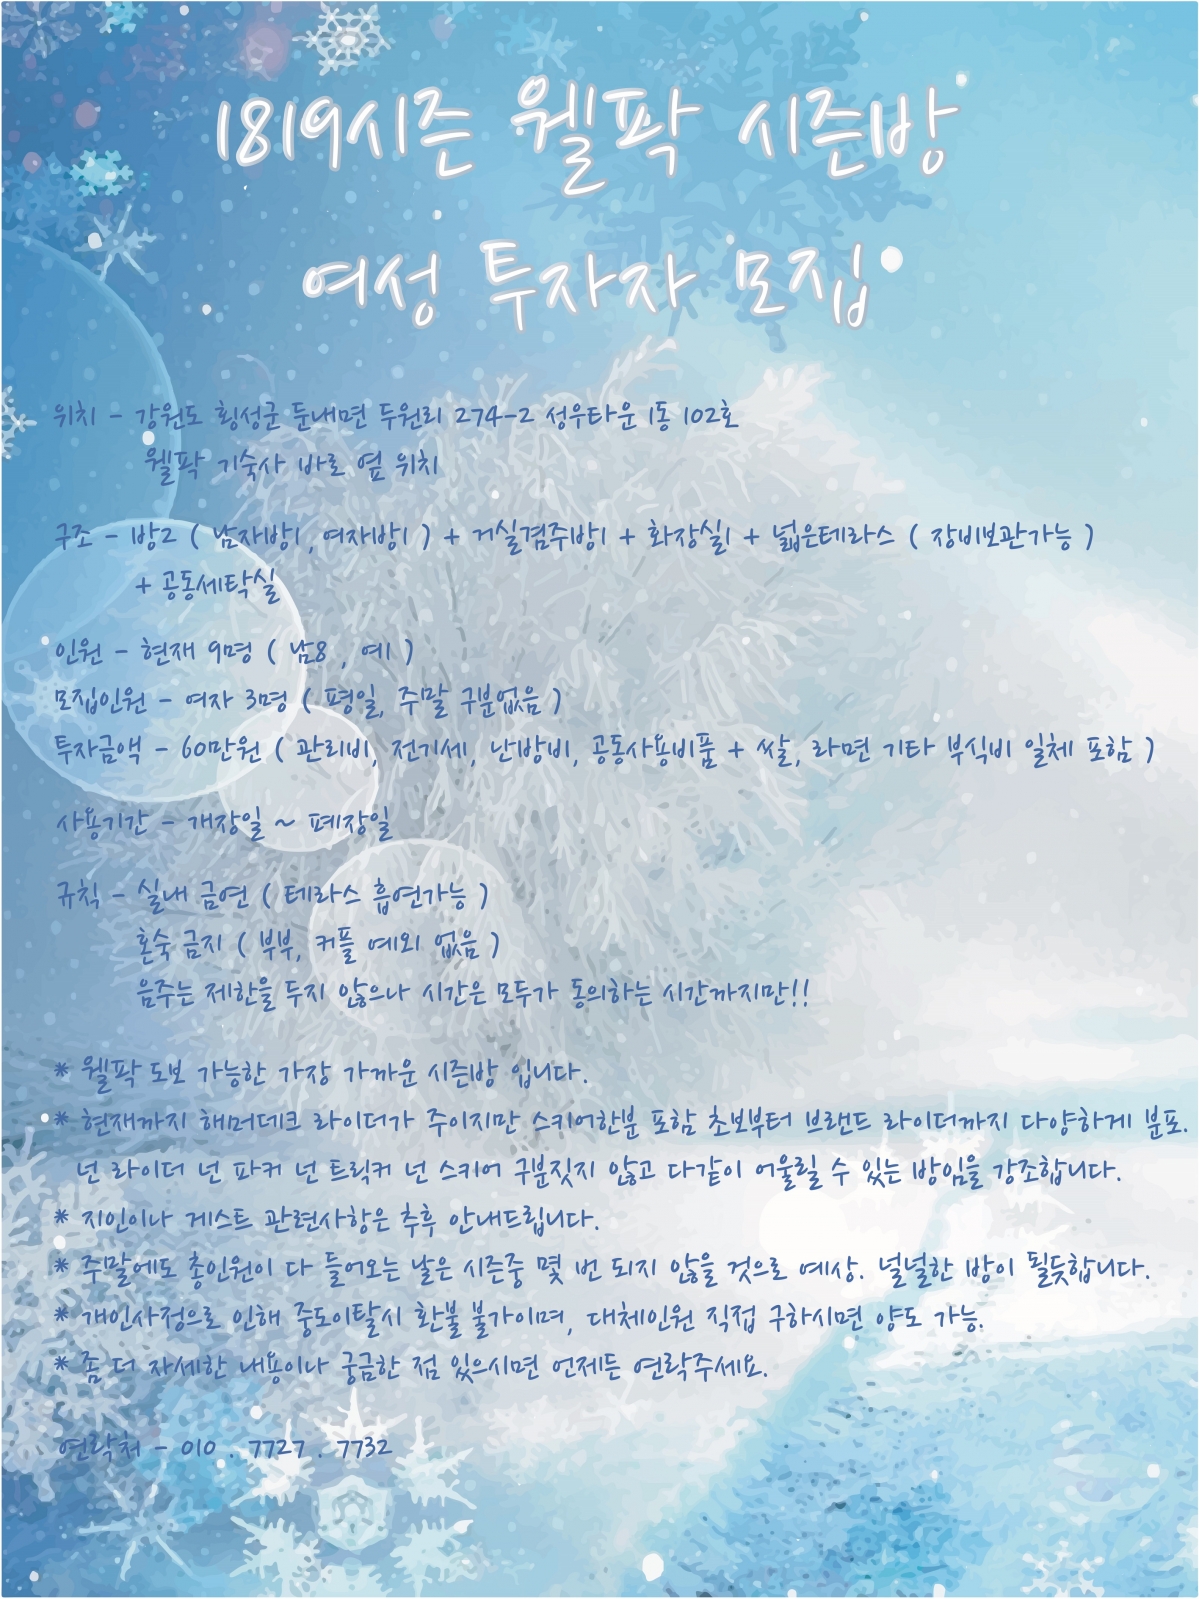 1819시즌 웰팍 시즌방
여성 투자자 모집
위치 - 강원도 횡성군 둔내면 두원리 274-2 성우타운 1동 102호
웰팍 기숙사 바로 옆 위치
구조 - 방2 ( 남자방1, 여자방1 ) + 거실겸주방1 + 화장실1 + 넓은테라스 ( 장비보관가능 )
+ 공동세탁실
인원 - 현재 9명 ( 남8 , 여1 )
모집인원 - 여자 3명 ( 평일, 주말 구분없음 )
투자금액 - 60만원 ( 관리비, 전기세, 난방비, 공동사용비품 + 쌀, 라면 기타 부식비 일체 포함 )
사용기간 - 개장일 ~ 폐장일
규칙 - 실내 금연 ( 테라스 흡연가능 )
혼숙 금지 ( 부부, 커플 예외 없음 )
음주는 제한을 두지 않으나 시간은 모두가 동의하는 시간까지만!!
* 웰팍 도보 가능한 가장 가까운 시즌방 입니다.
* 현재까지 해머데크 라이더가 주이지만 스키어한분 포함 초보부터 브랜드 라이더까지 다양하게 분포.
넌 라이더 넌 파커 넌 트릭커 넌 스키어 구분짓지 않고 다같이 어울릴 수 있는 방임을 강조합니다.
* 지인이나 게스트 관련사항은 추후 안내드립니다.
* 주말에도 총인원이 다 들어오는 날은 시즌중 몇 번 되지 않을 것으로 예상. 널널한 방이 될듯합니다.
* 개인사정으로 인해 중도이탈시 환불 불가이며, 대체인원 직접 구하시면 양도 가능.
* 좀 더 자세한 내용이나 궁금한 점 있으시면 언제든 연락주세요.
연락처 - 010 . 7727 . 7732